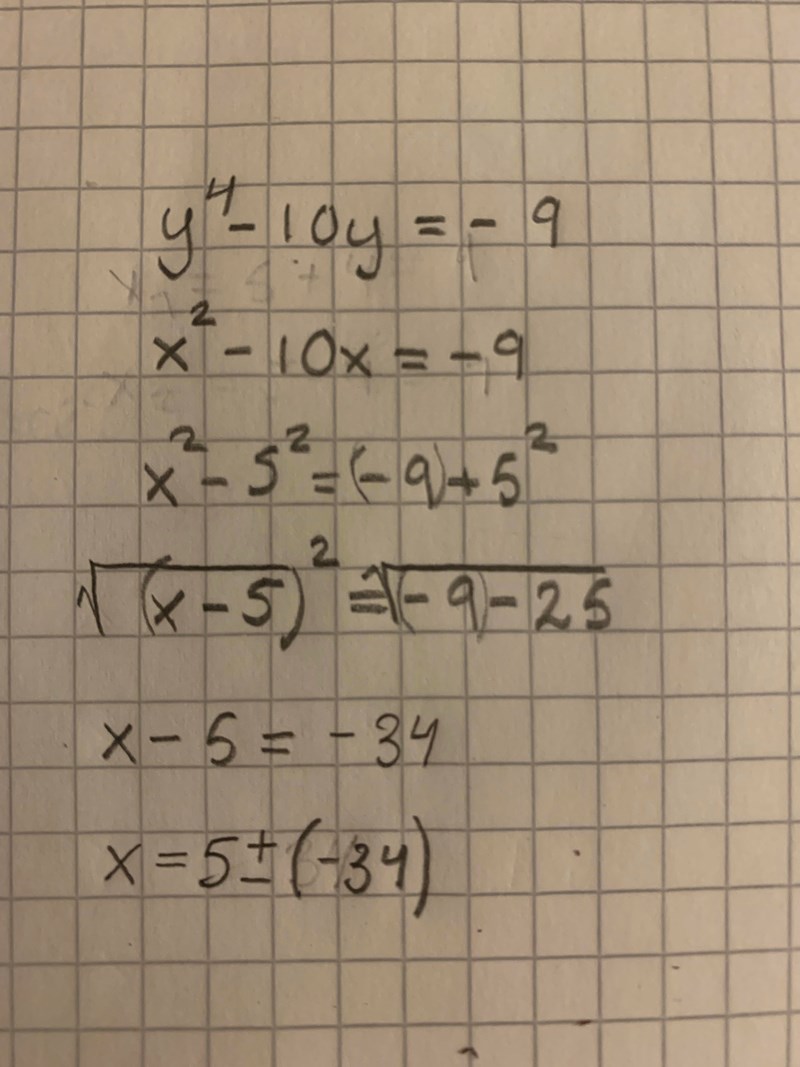 y⁴ - 10y = - 9
x² - 10x = -9
x² - 5² = (-9) + 5²
√(x - 5)² = √(-9) - 25
x - 5 = - 34
x = 5 ± (-34)